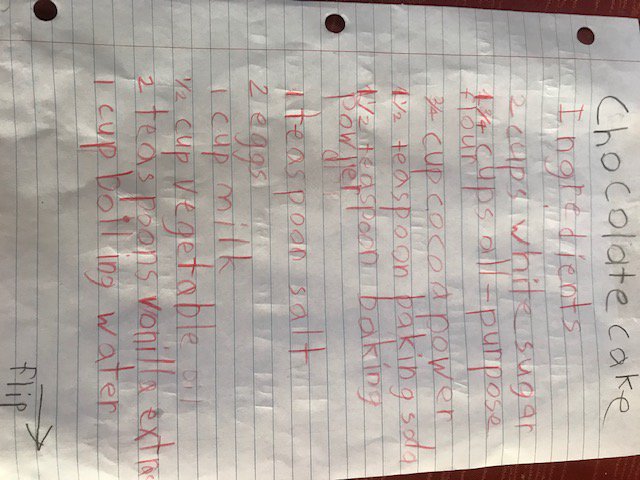 Chocolate cake
Ingredients
2 cups white sugar
1 3/4 cups all-purpose
flour
3/4 cup cocoa power
1 1/2 teaspoon baking soda
1 1/2 teaspoon baking
powder
1 teaspoon salt
2 eggs
1 cup milk
1/2 cup vegetable oil
2 teaspoons vanilla extrac
1 cup boiling water
flip →